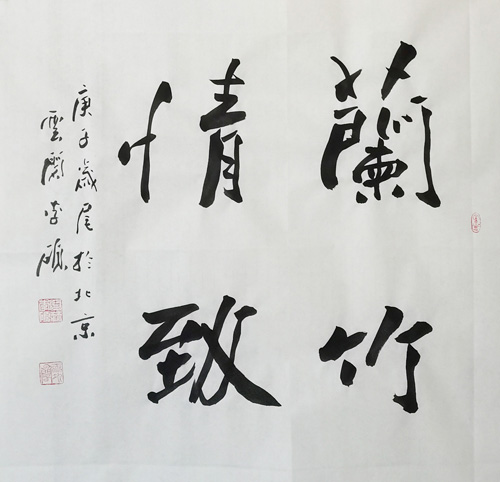 蘭竹
情致
庚子歲尾於北京
雲 李